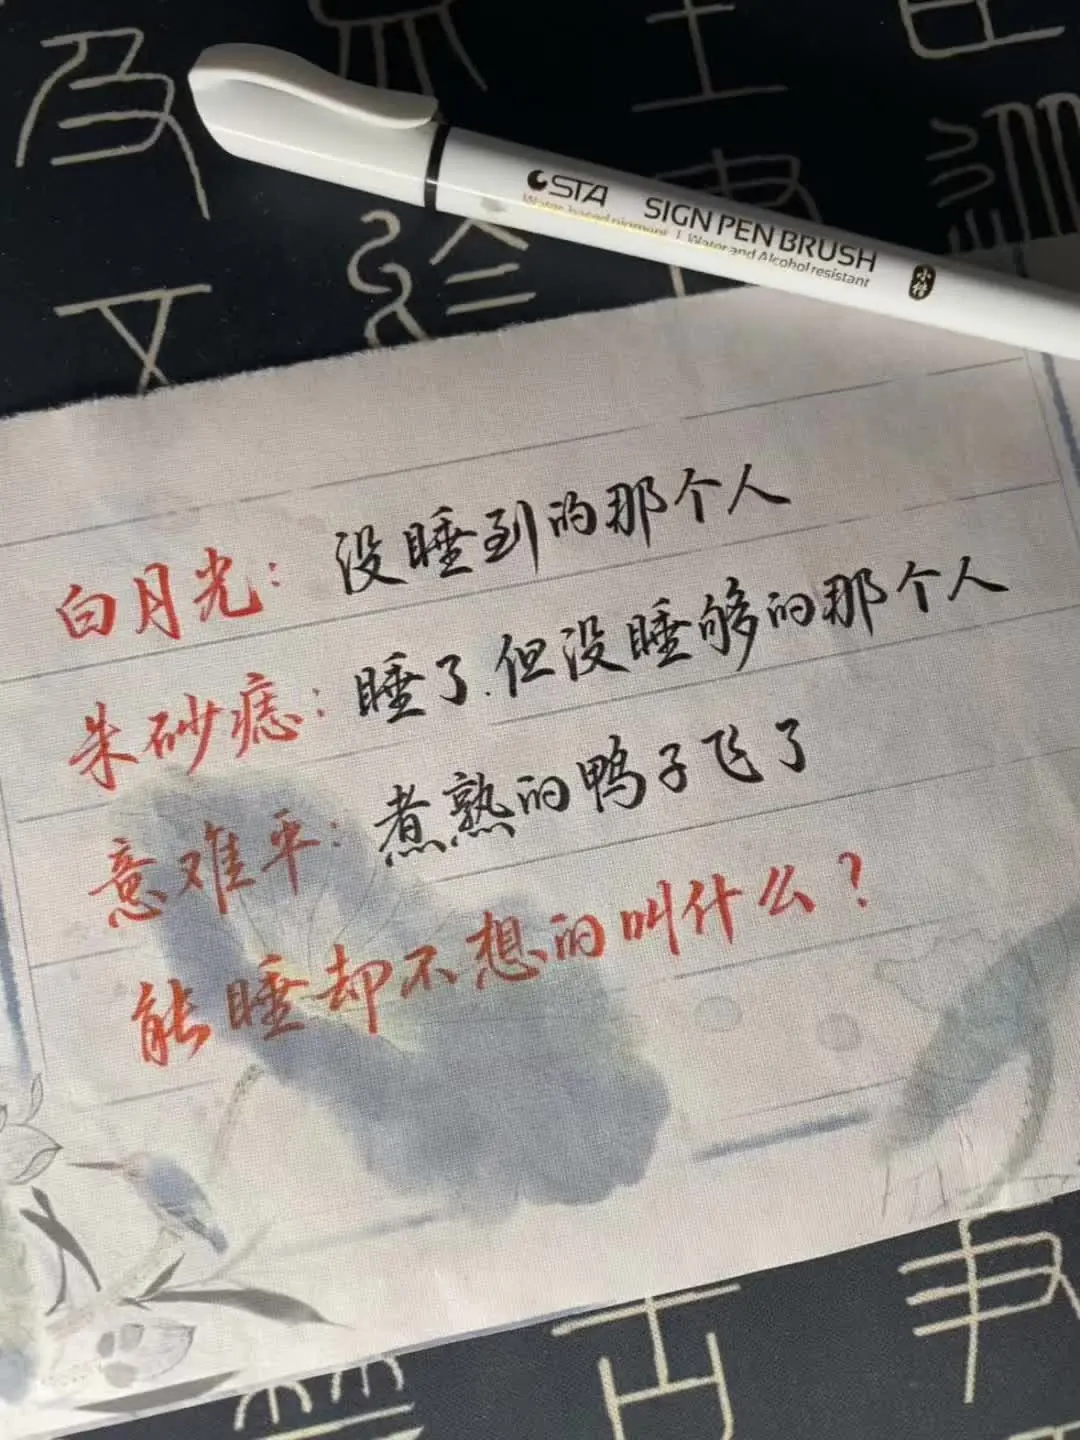 STA SIGN PEN BRUSH
Water-based pigment | Water and Alcohol resistant
小楷
白月光：没睡到的那个人
朱砂痣：睡了.但没睡够的那个人
意难平：煮熟的鸭子飞了
能睡却不想的叫什么？